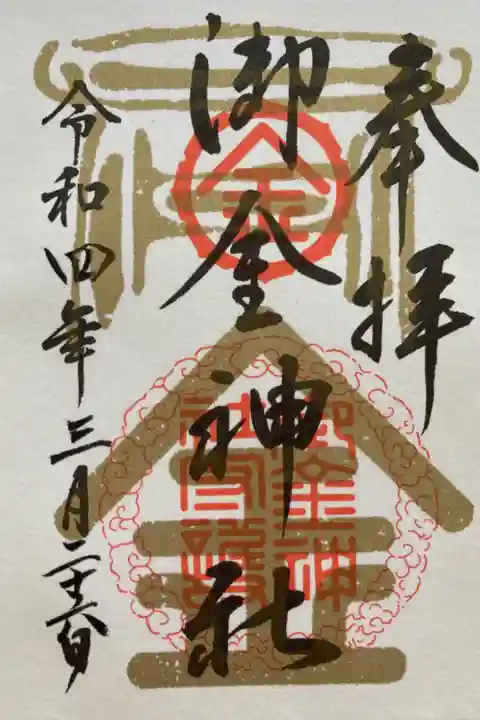 奉拝
御金神社
令和四年三月二十六日
金
御金神
社